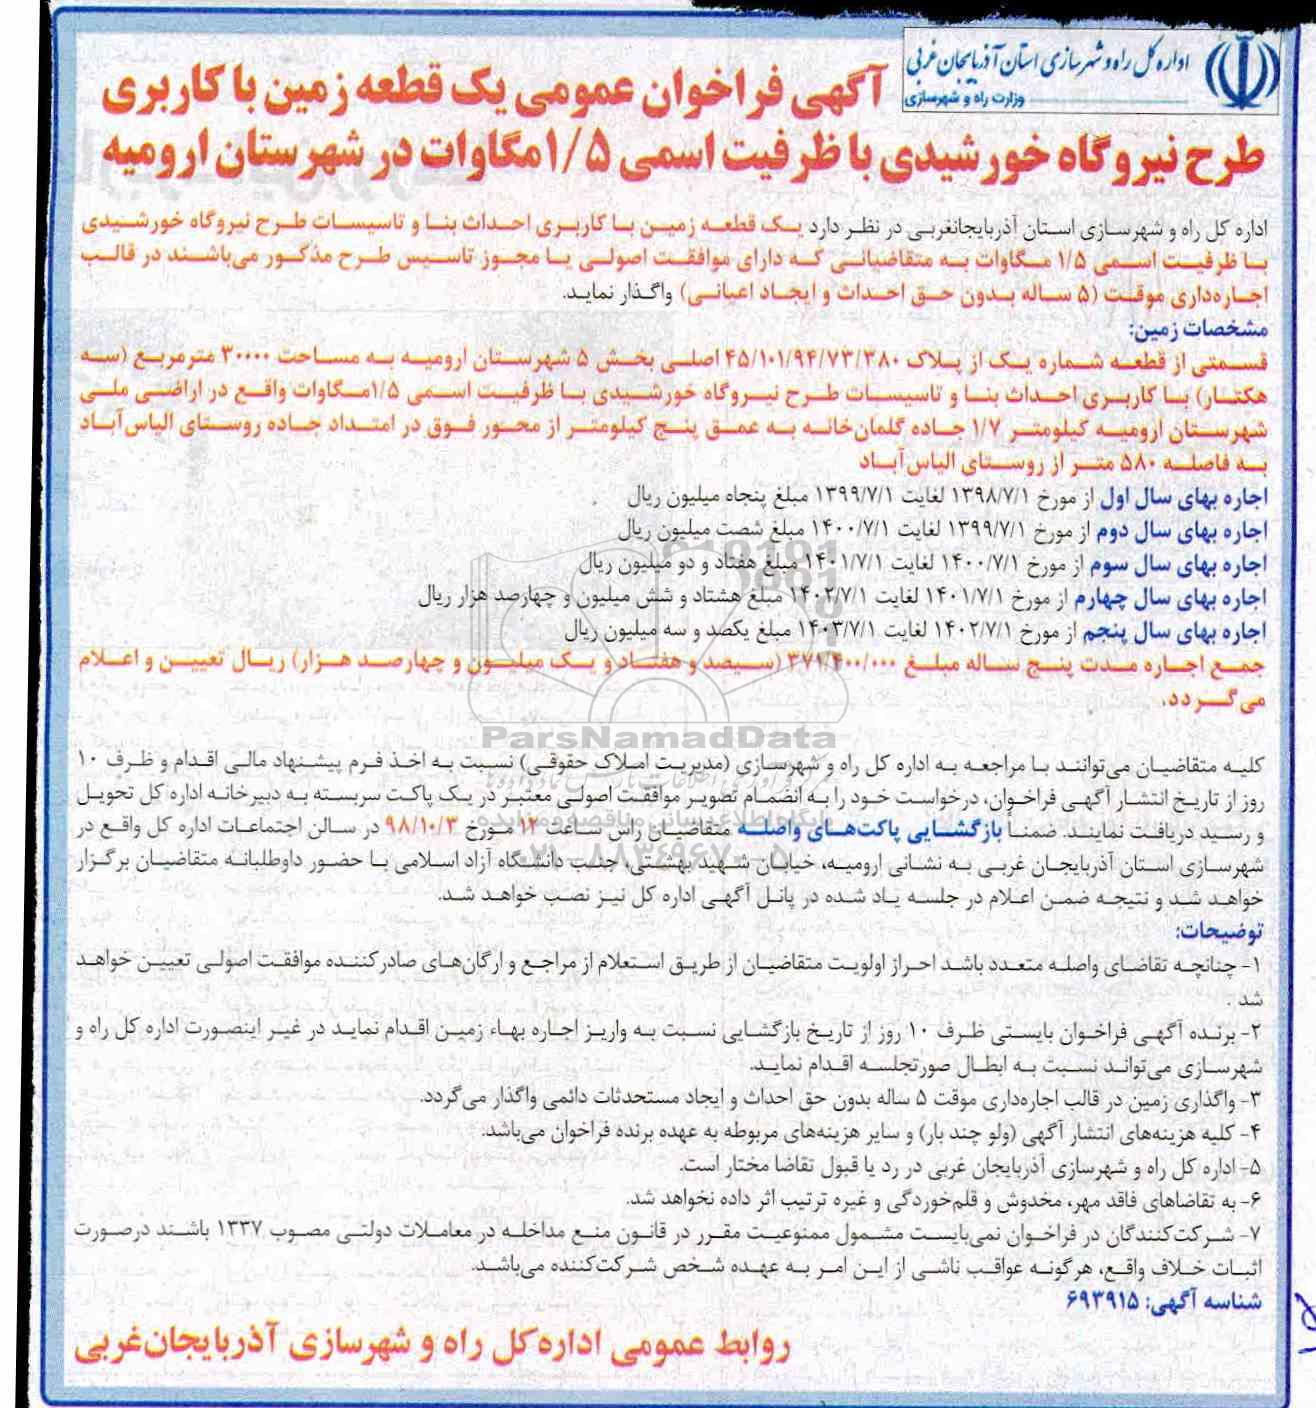 اداره کل راه و شهرسازی استان آذربایجان غربی
وزارت راه و شهرسازی
آگهی فراخوان عمومی یک قطعه زمین با کاربری
طرح نیروگاه خورشیدی با ظرفیت اسمی ۱/۵مگاوات در شهرستان ارومیه
اداره کل راه و شهرسازی استان آذربایجانغربی در نظر دارد یک قطعه زمین با کاربری احداث بنا و تاسیسات طرح نیروگاه خورشیدی
با ظرفیت اسمی ۱/۵ مگاوات به متقاضیانی که دارای موافقت اصولی یا مجوز تاسیس طرح مذکور می‌باشند در قالب
اجاره‌داری موقت (۵ ساله بدون حق احداث و ایجاد اعیانی) واگذار نماید.
مشخصات زمین:
قسمتی از قطعه شماره یک از پلاک ۴۵/۱۰۱/۹۴/۷۳/۳۸۰ اصلی بخش ۵ شهرستان ارومیه به مساحت ۳۰۰۰۰ مترمربع (سه
هکتار) با کاربری احداث بنا و تاسیسات طرح نیروگاه خورشیدی با ظرفیت اسمی ۱/۵مگاوات واقع در اراضی ملی
شهرستان ارومیه کیلومتر ۱/۷ جاده گلمان‌خانه به عمق پنج کیلومتر از محور فوق در امتداد جاده روستای الیاس‌آباد
به فاصله ۵۸۰ متر از روستای الیاس‌آباد
اجاره بهای سال اول از مورخ ۱۳۹۸/۷/۱ لغایت ۱۳۹۹/۷/۱ مبلغ پنجاه میلیون ریال
اجاره بهای سال دوم از مورخ ۱۳۹۹/۷/۱ لغایت ۱۴۰۰/۷/۱ مبلغ شصت میلیون ریال
اجاره بهای سال سوم از مورخ ۱۴۰۰/۷/۱ لغایت ۱۴۰۱/۷/۱ مبلغ هفتاد و دو میلیون ریال
اجاره بهای سال چهارم از مورخ ۱۴۰۱/۷/۱ لغایت ۱۴۰۲/۷/۱ مبلغ هشتاد و شش میلیون و چهارصد هزار ریال
اجاره بهای سال پنجم از مورخ ۱۴۰۲/۷/۱ لغایت ۱۴۰۳/۷/۱ مبلغ یکصد و سه میلیون ریال
جمع اجاره مدت پنج ساله مبلغ ۳۷۱/۴۰۰/۰۰۰ (سیصد و هفتاد و یک میلیون و چهارصد هزار) ریال تعیین و اعلام
می‌گردد.
ParsNamadData
کلیه متقاضیان می‌توانند با مراجعه به اداره کل راه و شهرسازی (مدیریت املاک حقوقی) نسبت به اخذ فرم پیشنهاد مالی اقدام و ظرف ۱۰
روز از تاریخ انتشار آگهی فراخوان، درخواست خود را به انضمام تصویر موافقت اصولی معتبر در یک پاکت سربسته به دبیرخانه اداره کل تحویل
و رسید دریافت نمایند. ضمناً بازگشایی پاکت‌های واصله متقاضیان راس ساعت ۱۲ مورخ ۹۸/۱۰/۳ در سالن اجتماعات اداره کل واقع در
شهرسازی استان آذربایجان غربی به نشانی ارومیه، خیابان شهید بهشتی، جنب دانشگاه آزاد اسلامی با حضور داوطلبانه متقاضیان برگزار
خواهد شد و نتیجه ضمن اعلام در جلسه یاد شده در پانل آگهی اداره کل نیز نصب خواهد شد.
توضیحات:
۱- چنانچه تقاضای واصله متعدد باشد احراز اولویت متقاضیان از طریق استعلام از مراجع و ارگان‌های صادرکننده موافقت اصولی تعیین خواهد
شد .
۲- برنده آگهی فراخوان بایستی ظرف ۱۰ روز از تاریخ بازگشایی نسبت به واریز اجاره بهاء زمین اقدام نماید در غیر اینصورت اداره کل راه و
شهرسازی می‌تواند نسبت به ابطال صورتجلسه اقدام نماید.
۳- واگذاری زمین در قالب اجاره‌داری موقت ۵ ساله بدون حق احداث و ایجاد مستحدثات دائمی واگذار می‌گردد.
۴- کلیه هزینه‌های انتشار آگهی (ولو چند بار) و سایر هزینه‌های مربوطه به عهده برنده فراخوان می‌باشد.
۵- اداره کل راه و شهرسازی آذربایجان غربی در رد یا قبول تقاضا مختار است.
۶- به تقاضاهای فاقد مهر، مخدوش و قلم‌خوردگی و غیره ترتیب اثر داده نخواهد شد.
۷- شرکت‌کنندگان در فراخوان نمی‌بایست مشمول ممنوعیت مقرر در قانون منع مداخله در معاملات دولتی مصوب ۱۳۳۷ باشند درصورت
اثبات خلاف واقع، هرگونه عواقب ناشی از این امر به عهده شخص شرکت‌کننده می‌باشد.
شناسه آگهی: ۶۹۳۹۱۵
روابط عمومی اداره‌کل راه و شهرسازی آذربایجان‌غربی